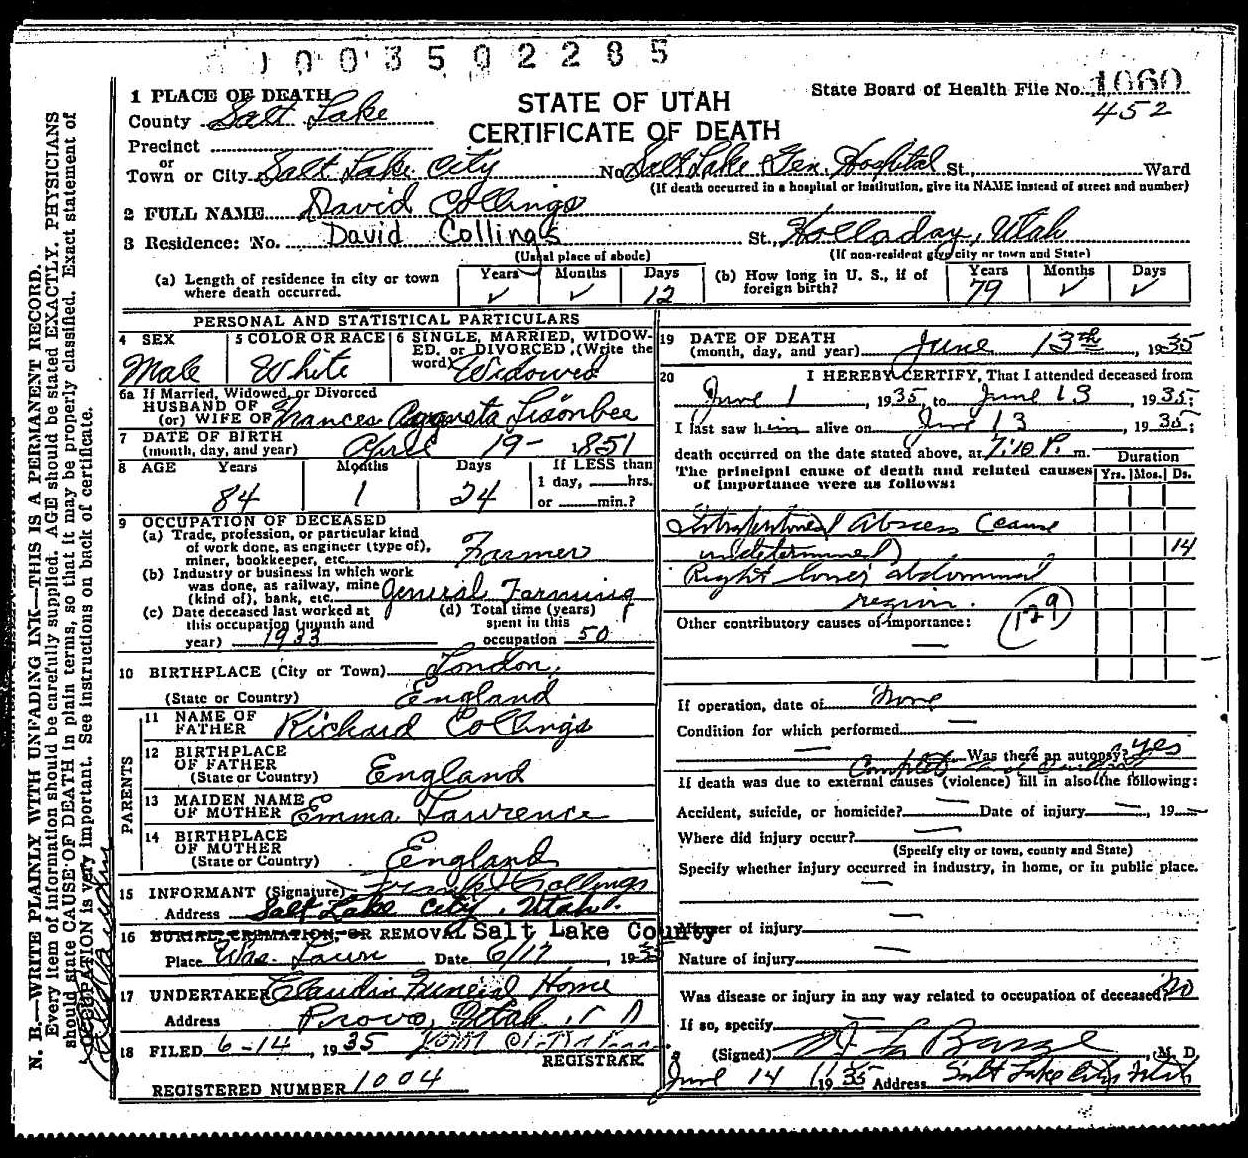 1003502285
1 PLACE OF DEATH
County Salt Lake
Precinct
or
Town or City Salt Lake City
STATE OF UTAH
CERTIFICATE OF DEATH
State Board of Health File No. 1060
452
No. Salt Lake Gen. Hospital St., Ward
(If death occurred in a hospital or institution, give its NAME instead of street and number)
2 FULL NAME David Collings
3 Residence: No. David Collings St., Holladay, Utah
(Usual place of abode) (If non-resident give city or town and State)
(a) Length of residence in city or town where death occurred. Years ✓ Months ✓ Days 12
(b) How long in U. S., if of foreign birth? Years 79 Months ✓ Days ✓
PERSONAL AND STATISTICAL PARTICULARS
4 SEX Male
5 COLOR OR RACE White
6 SINGLE, MARRIED, WIDOWED, or DIVORCED, (Write the word) Widowed
6a If Married, Widowed, or Divorced
HUSBAND OF
(or) WIFE OF Frances Augusta Lisonbee
7 DATE OF BIRTH
(month, day, and year) April 19- 1851
8 AGE Years 84 Months 1 Days 24
If LESS than
1 day, hrs.
or min.?
9 OCCUPATION OF DECEASED
(a) Trade, profession, or particular kind
of work done, as engineer (type of),
miner, bookkeeper, etc. Farmer
(b) Industry or business in which work
was done, as railway, mine
(kind of), bank, etc. General Farming
(c) Date deceased last worked at
this occupation (month and
year) 1933
(d) Total time (years)
spent in this
occupation 50
10 BIRTHPLACE (City or Town) London,
(State or Country) England
PARENTS
11 NAME OF
FATHER Richard Collings
12 BIRTHPLACE
OF FATHER
(State or Country) England
13 MAIDEN NAME
OF MOTHER Emma Lawrence
14 BIRTHPLACE
OF MOTHER
(State or Country) England
15 INFORMANT (Signature) Frank Collings
Address Salt Lake City, Utah.
16 BURIAL, CREMATION, OR REMOVAL Salt Lake County
Place Was. Lawn Date 6/17, 1935
17 UNDERTAKER Claudin Funeral Home
Address Provo, Utah
18 FILED 6-14, 1935
REGISTRAR
REGISTERED NUMBER 1004
19 DATE OF DEATH
(month, day, and year) June 13th, 1935
20 I HEREBY CERTIFY, That I attended deceased from
June 1, 1935, to June 13, 1935;
I last saw him alive on June 13, 1935;
death occurred on the date stated above, at 7:10 P. m.
The principal cause of death and related causes
of importance were as follows:
Duration
Yrs. Mos. Ds.
Intraperitoneal Abscess (cause
undetermined) 14
Right lower abdominal
region.
129
Other contributory causes of importance:
If operation, date of None
Condition for which performed
Was there an autopsy? Yes
If death was due to external causes (violence) fill in also the following:
Accident, suicide, or homicide? Date of injury , 19
Where did injury occur?
(Specify city or town, county and State)
Specify whether injury occurred in industry, in home, or in public place.
Manner of injury
Nature of injury
Was disease or injury in any way related to occupation of deceased? No
If so, specify
(Signed) , M. D.
June 14 1935 Address Salt Lake City, Utah
N. B.—WRITE PLAINLY WITH UNFADING INK—THIS IS A PERMANENT RECORD.
Every item of information should be carefully supplied. AGE should be stated EXACTLY. PHYSICIANS
should state CAUSE OF DEATH in plain terms, so that it may be properly classified. Exact statement of
OCCUPATION is very important. See instructions on back of certificate.